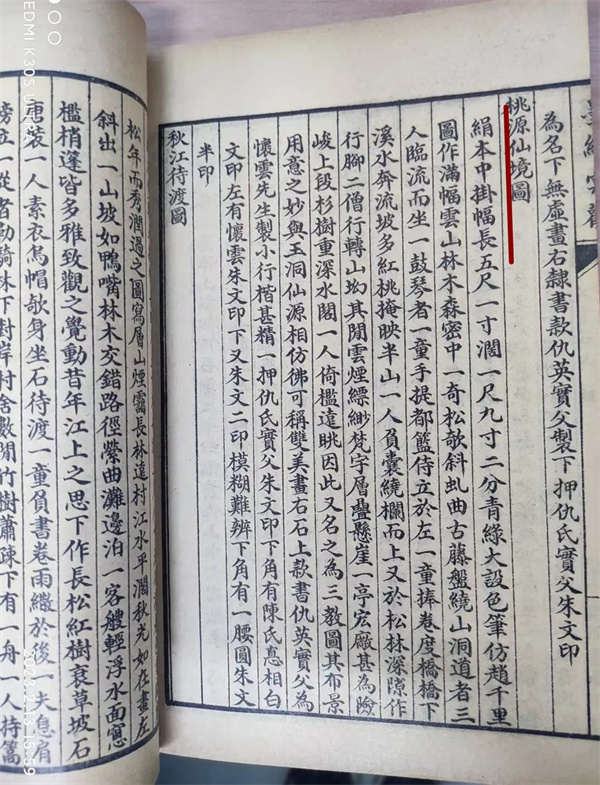 為名下無虛畫右隸書款仇英實父製下押仇氏實父朱文印
桃源仙境圖
絹本中掛幅長五尺一寸濶一尺九寸二分青綠大設色筆仿趙千里
圖作滿幅雲山林木森密中一奇松欹斜虬曲古藤盤繞山洞道者三
人臨流而坐一鼓琴者一童手提都籃侍立於左一童捧卷度橋橋下
溪水奔流坡多紅桃掩映半山一人負囊繞欄而上又於松林深隙作
行腳二僧行轉山坳其閒雲煙縹緲梵宇層疊懸崖一亭宏厰甚為險
峻上段杉樹重深水閣一人倚檻遠眺因此又名之為三教圖其布景
用意之妙與玉洞仙源相仿佛可稱雙美畫右石上款書仇英實父為
懷雲先生製小行楷甚精一押仇氏實父朱文印下角有陳氏悳相白
文印左有懷雲朱文印下又朱文二印模糊難辨下角有一腰圖朱文
半印
秋江待渡圖
松年而秀潤過之圖寫層山煙靄長林遠村江水平濶秋光如在畫左
斜出一山坡如鴨嘴林木交錯路徑縈曲灘邊泊一客艘輕浮水面窻
檻梢篷皆多雅致觀之覺動昔年江上之思下作長松紅樹衰草坡石
唐裝一人素衣烏帽欹身坐石待渡一童負書卷雨繖於後一夫息肩
傍立一從者勒騎林下對岸村舍數閒竹樹蕭疎下有一舟一人持篙
EDMI K30S